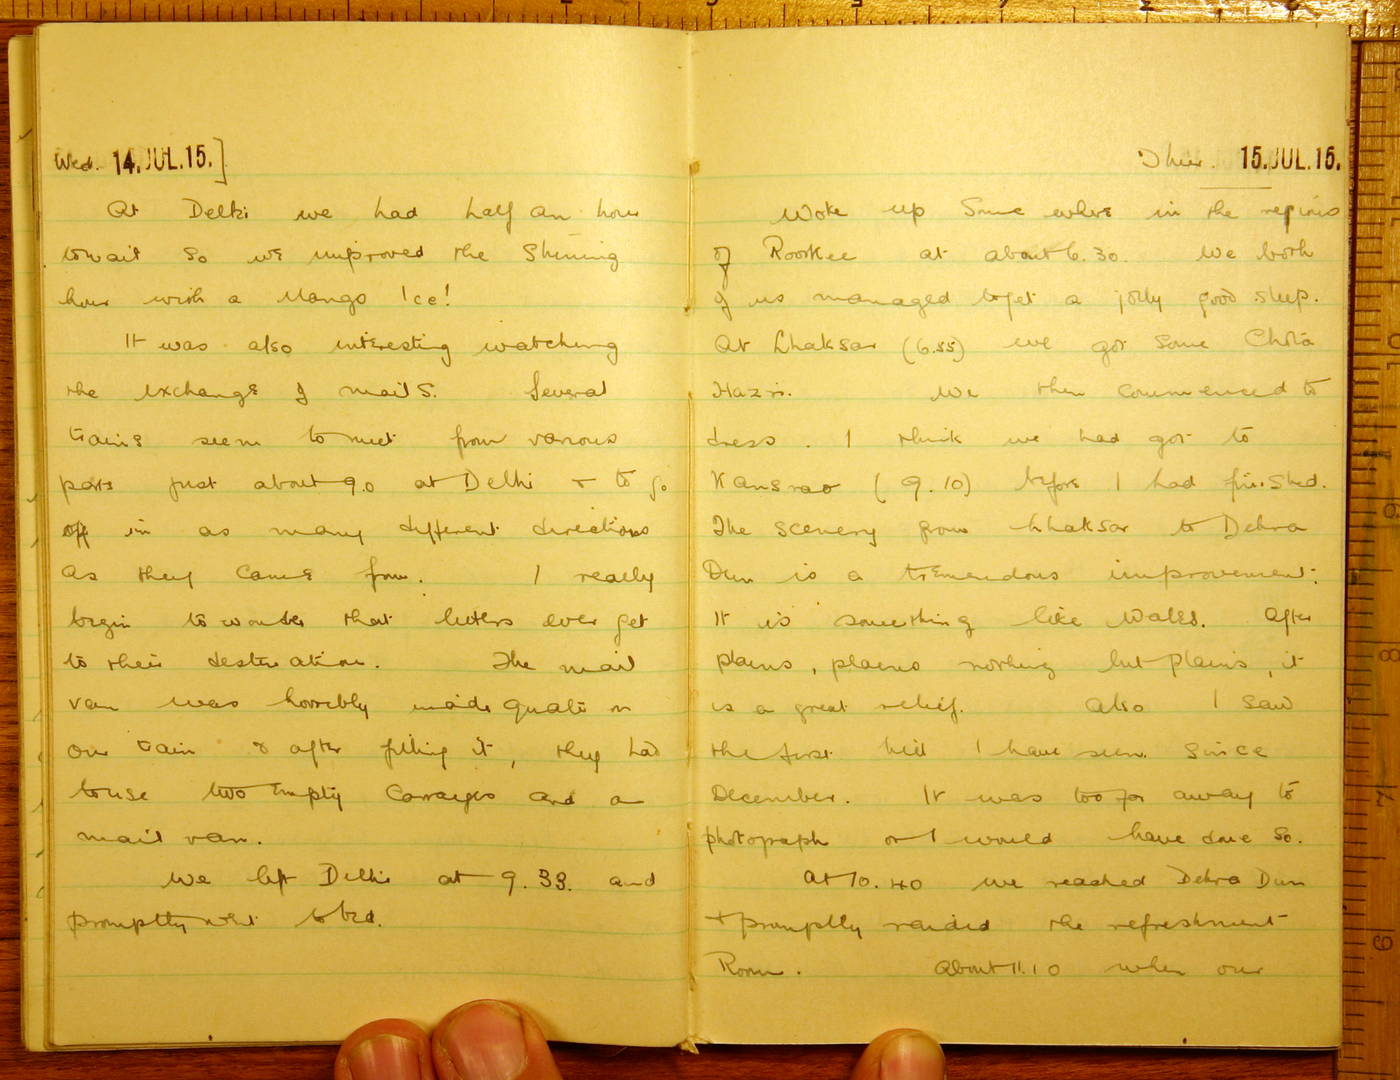 Wed. 14.JUL.15.]
At Delhi we had half an hour
to wait so we improved the Shining
hour with a Mango Ice!
It was also interesting watching
the exchange of mails. Several
trains seem to meet from various
parts just about 9.0 at Delhi & to go
off in as many different directions
as they came from. I really
begin to wonder that letters ever get
to their destination. The mail
van was horribly inadequate on
our train & after filling it, they had
to use two empty carraiges and a
mail van.
We left Delhi at 9.33. and
promptly went to bed.
Thur. 15.JUL.15.
Woke up Some where in the regions
of Roorkee at about 6.30. We both
of us managed to get a jolly good sleep.
At Lhaksar (6.55) we got some Chota
Hazri. We then commenced to
dress. I think we had got to
Kansrao (9.10) before I had finished.
The scenery from Lhaksar to Dehra
Dun is a tremendous improvement.
It is something like Wales. After
plains, plains nothing but plains, it
is a great relief. Also I saw
the first hill I have seen since
December. It was too far away to
photograph or I would have done so.
At 10.40 we reached Dehra Dun
& promptly raided the refreshment
Room. About 11.10 when our